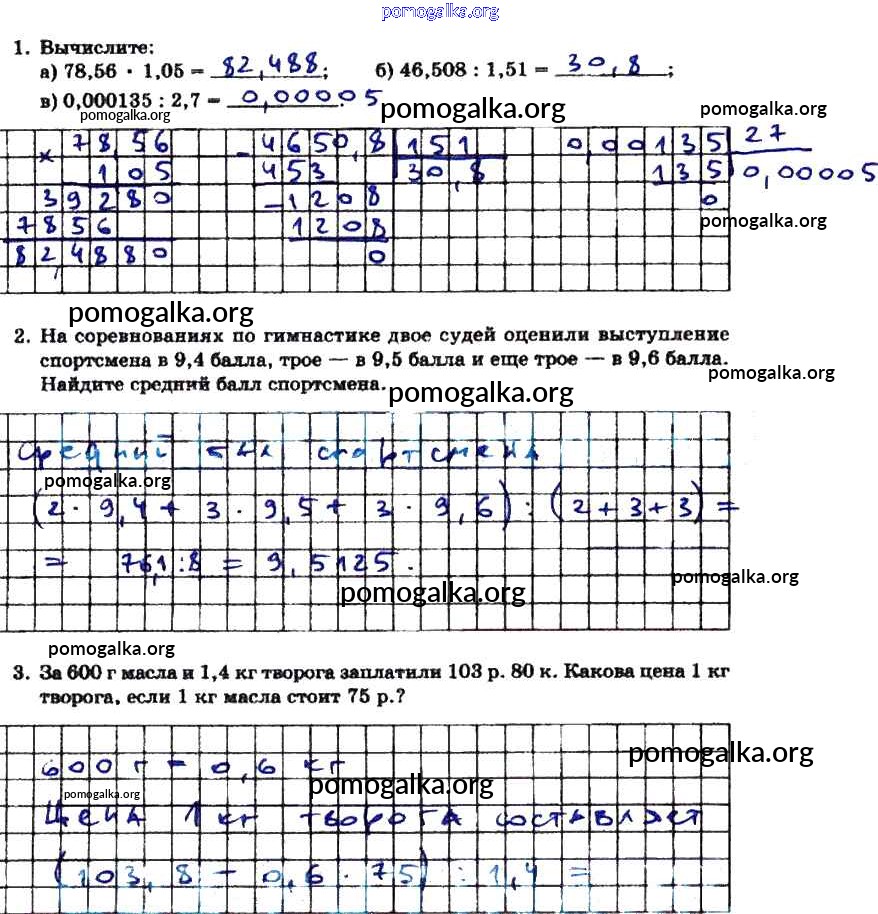 pomogalka.org
1. Вычислите:
а) 78,56 · 1,05 = 82,488; б) 46,508 : 1,51 = 30,8;
в) 0,000135 : 2,7 = 0,00005
pomogalka.org pomogalka.org
× 78,56 - 4650,8 151 0,00135 27
105 453 30,8 135 0,00005
39280 -1208 0
7856 1208 pomogalka.org
82,4880 0
pomogalka.org
2. На соревнованиях по гимнастике двое судей оценили выступление
спортсмена в 9,4 балла, трое — в 9,5 балла и еще трое — в 9,6 балла.
Найдите средний балл спортсмена.
pomogalka.org pomogalka.org
Средний балл спортсмена
pomogalka.org
(2 · 9,4 + 3 · 9,5 + 3 · 9,6) : (2 + 3 + 3) =
= 76,1 : 8 = 9,5125.
pomogalka.org pomogalka.org
pomogalka.org
3. За 600 г масла и 1,4 кг творога заплатили 103 р. 80 к. Какова цена 1 кг
творога, если 1 кг масла стоит 75 р.?
pomogalka.org
600 г = 0,6 кг
pomogalka.org pomogalka.org
Цена 1 кг творога составляет
(103,8 - 0,6 · 75) : 1,4 =